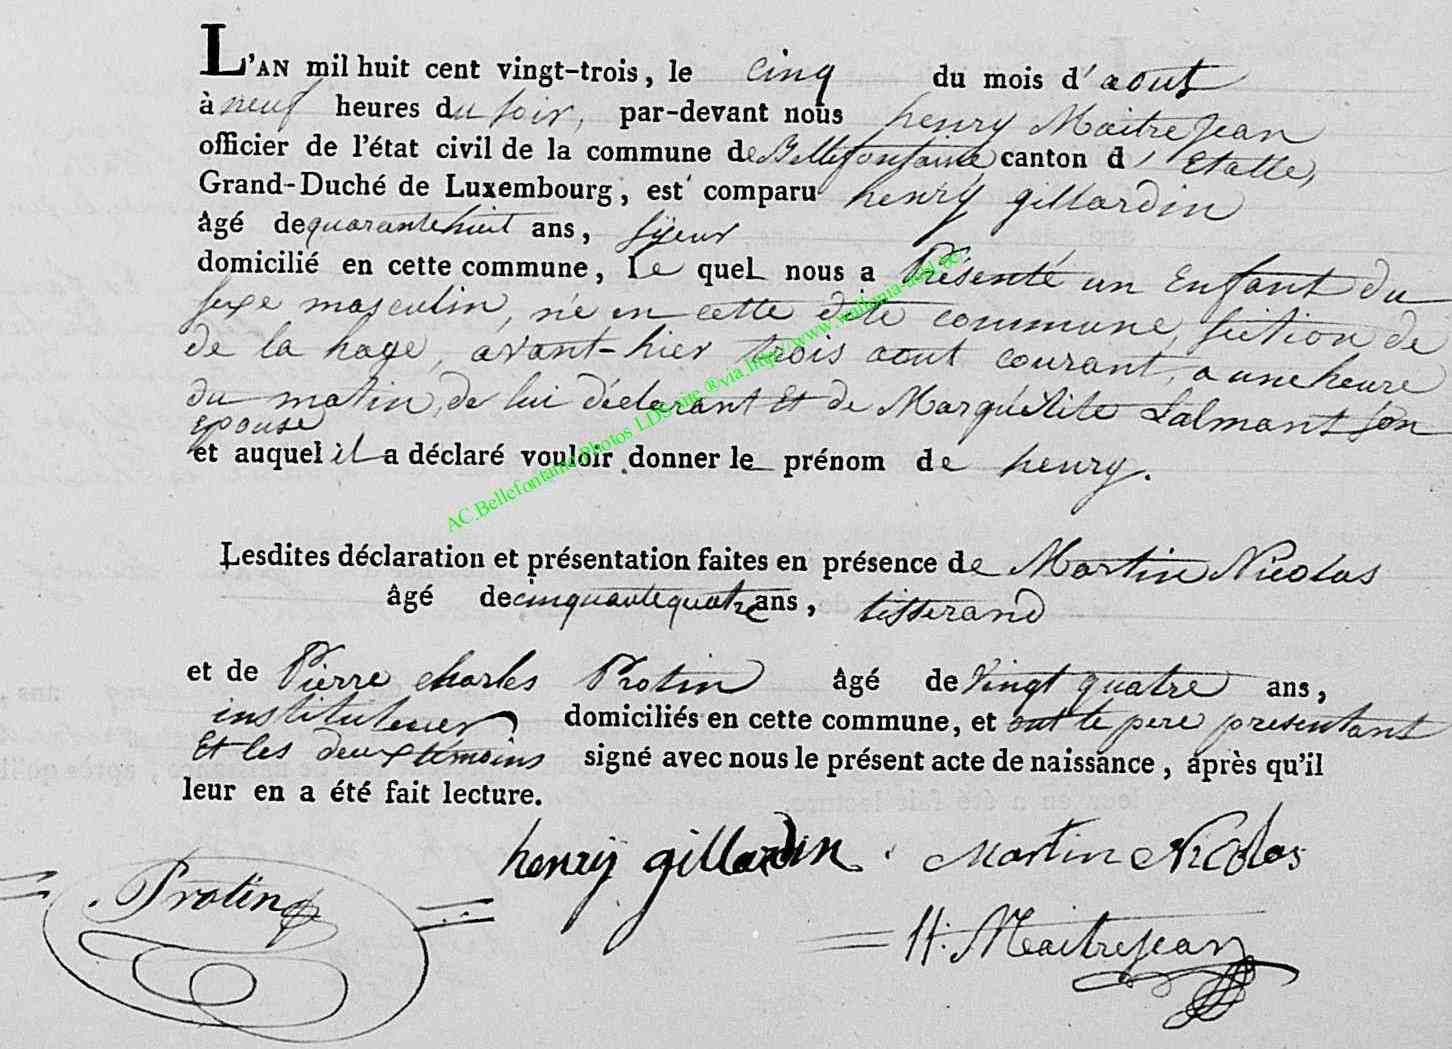 L'AN mil huit cent vingt-trois, le cinq du mois d'aout
à neuf heures du soir, par-devant nous henry Maitrejean
officier de l'état civil de la commune de Bellefontaine canton d'Etalle,
Grand-Duché de Luxembourg, est comparu henry gillardin
âgé de quarante huit ans,
domicilié en cette commune, le quel nous a Présenté un Enfant du
sexe masculin, né en cette dite commune, section de
de la hage, avant-hier trois aout courant, a une heure
du matin, de lui déclarant Et de Marguérite Lalmant son
Epouse
et auquel il a déclaré vouloir donner le prénom de henry.
Lesdites déclaration et présentation faites en présence de Martin Nicolas
âgé de cinquante quatre ans, tisserand
et de Pierre charles Protin âgé de vingt quatre ans,
instituteur domiciliés en cette commune, et ont le pere presentant
Et les deux témoins signé avec nous le présent acte de naissance, après qu'il
leur en a été fait lecture.
henrÿ gillardin. Martin Nicolas
Protin
H. Maitrejean
AC.Bellefontaine Photos LDS site @via.http://www.wallonia-asbl.be/